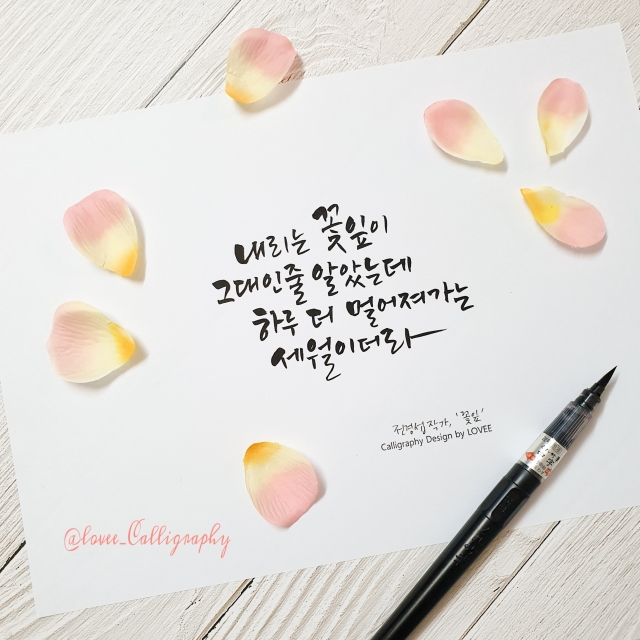 내리는 꽃잎이
그대인줄 알았는데
하루 더 멀어져가는
세월이더라
전경섭 작가, '꽃잎'
Calligraphy Design by LOVEE
@lovee_Calligraphy